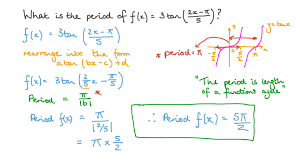 What is the period of f(x) = 3tan((2x-π)/5)?
f(x) = 3tan((2x-π)/5)
rearrange into the form
a tan(bx-c)+d
f(x) = 3tan(2/5 x - π/5)
Period = π/|b| *
Period f(x) = π/|2/5|
= π × 5/2
* period = π
y=tanx
"The period is length
of a functions cycle"
∴ Period f(x) = 5π/2